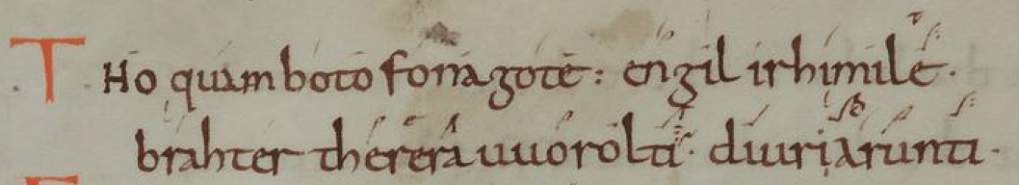 THo quam boto fona gote: engil irhimile·
brahter therera uuorolti· diuri arunti·